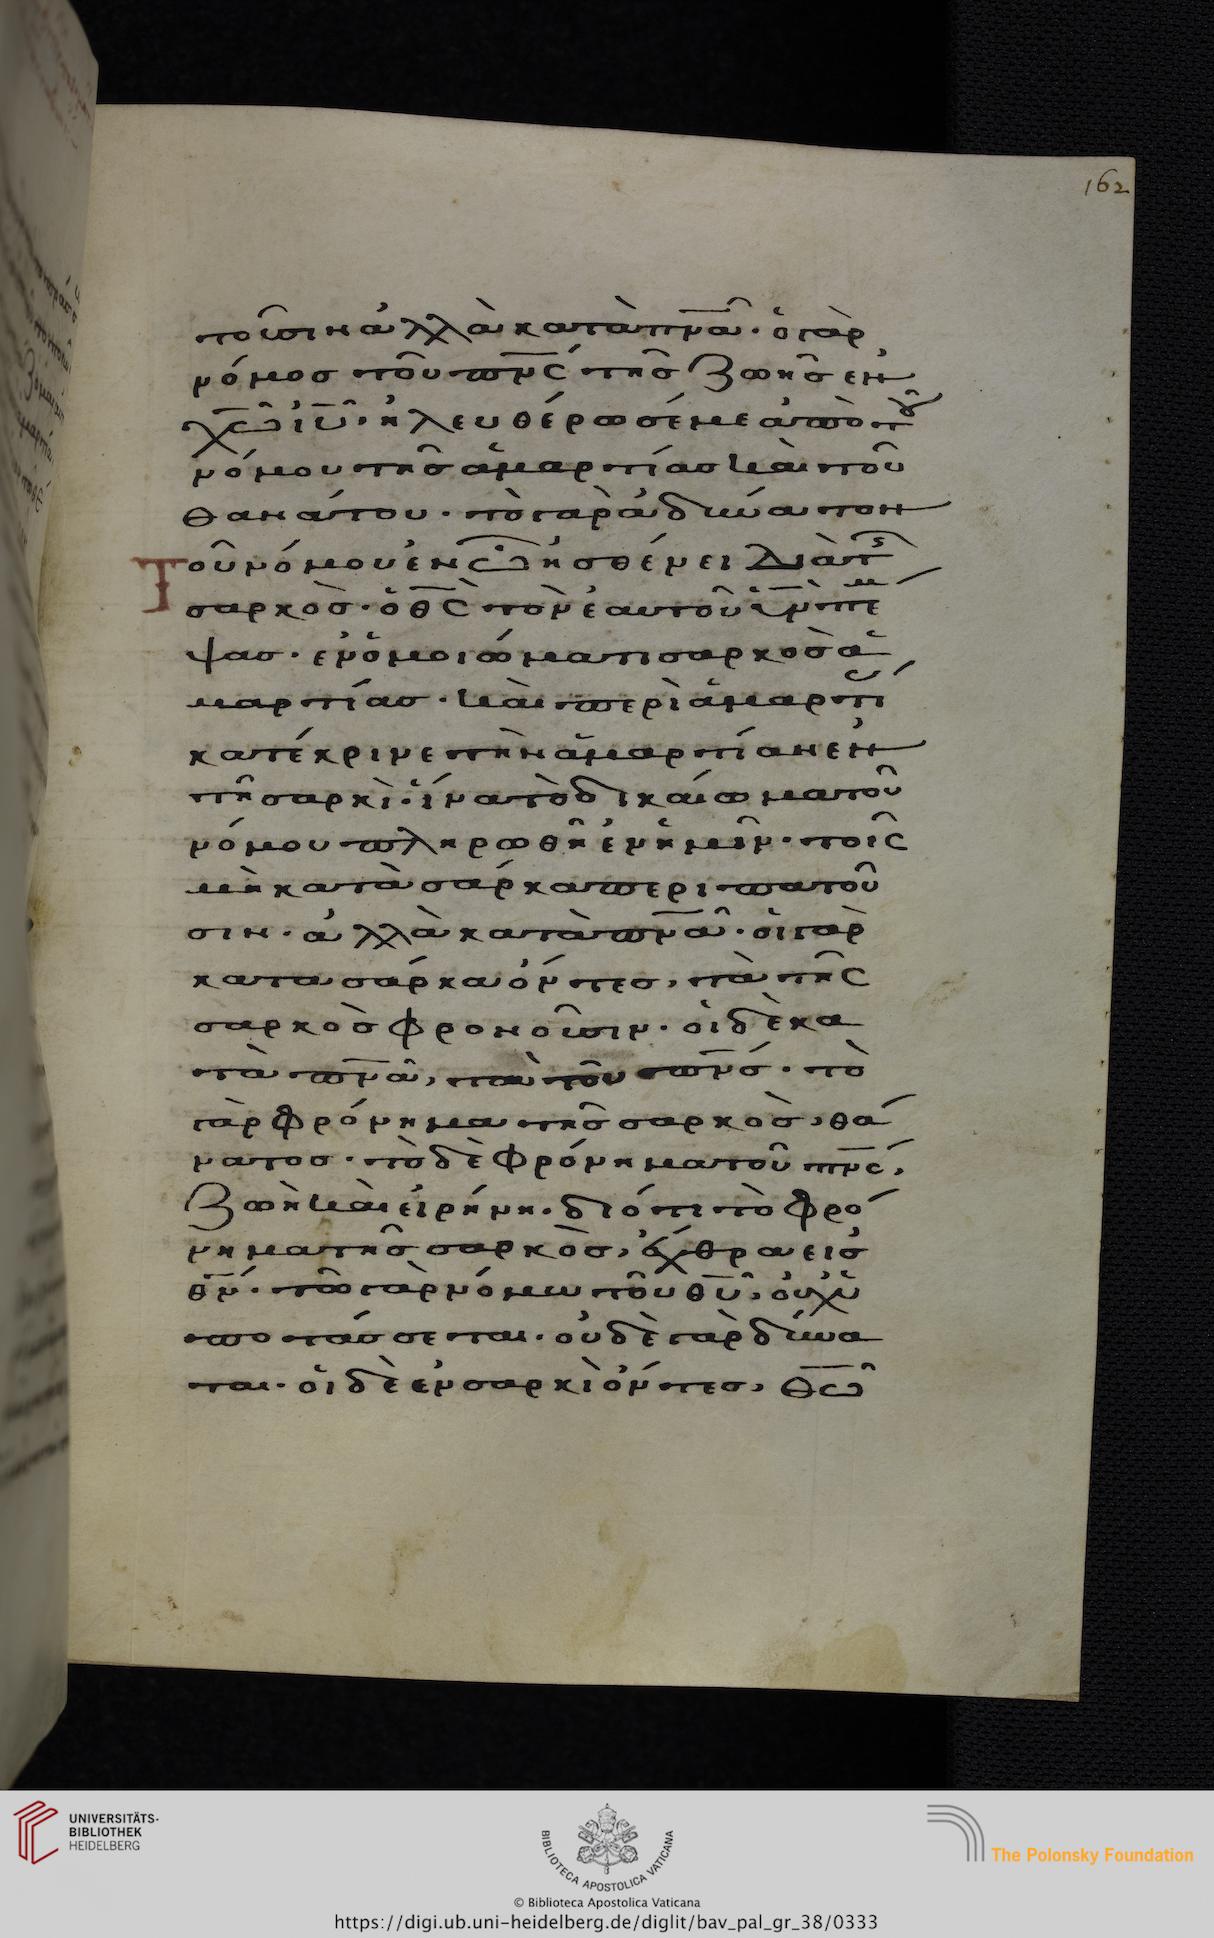 162
τοῦσιν ἀλλὰ κατὰ π̅ν̅α̅· ὁ γὰρ
νόμος τοῦ π̅ν̅ς̅ τῆς ζωῆς ἐν
χ̅ω̅ ἰ̅υ̅· ἠλευθέρωσέ με ἀπὸ τοῦ
νόμου τῆς ἁμαρτίας καὶ τοῦ
θανάτου· τὸ γὰρ ἀδύνατον
Τοῦ νόμου ἐν ὧ ἠσθένει διὰ τῆς
σαρκὸς· ὁ θ̅ς̅ τὸν ἑαυτοῦ υ̅ν̅ πέμ
ψας· ἐν ὁμοιώματι σαρκὸς ἁ
μαρτίας· καὶ περὶ ἁμαρτί
κατέκρινε τὴν ἁμαρτίαν ἐν
τῆ σαρκὶ· ἵνα τὸ δικαίωμα τοῦ
νόμου πληρωθῆ ἐν ἡμῖν· τοῖς
μὴ κατὰ σάρκα περιπατοῦ
σιν· ἀλλὰ κατὰ π̅ν̅α̅· οἱ γὰρ
κατα σάρκα ὄντες, τὰ τῆς
σαρκὸς φρονοῦσιν· οἱ δὲ κα
τὰ π̅ν̅α̅, τὰ τοῦ π̅ν̅ς̅· τὸ
γὰρ φρόνημα τῆς σαρκὸς, θά
νατος· τὸ δὲ φρόνημα τοῦ π̅ν̅ς̅,
ζωὴ καὶ εἰρήνη· διότι τὸ φρό
νημα τῆς σαρκὸς, ἔχθρα εἰς
θ̅ν̅· τῶ γὰρ νόμω τοῦ θ̅υ̅, οὐχ ὑ
ποτάσσεται· οὐδὲ γὰρ δύνα
ται· οἱ δὲ ἐν σαρκὶ ὄντες, θ̅ω̅
UNIVERSITÄTS-
BIBLIOTHEK
HEIDELBERG
BIBLIOTECA APOSTOLICA VATICANA
The Polonsky Foundation
© Biblioteca Apostolica Vaticana
https://digi.ub.uni-heidelberg.de/diglit/bav_pal_gr_38/0333